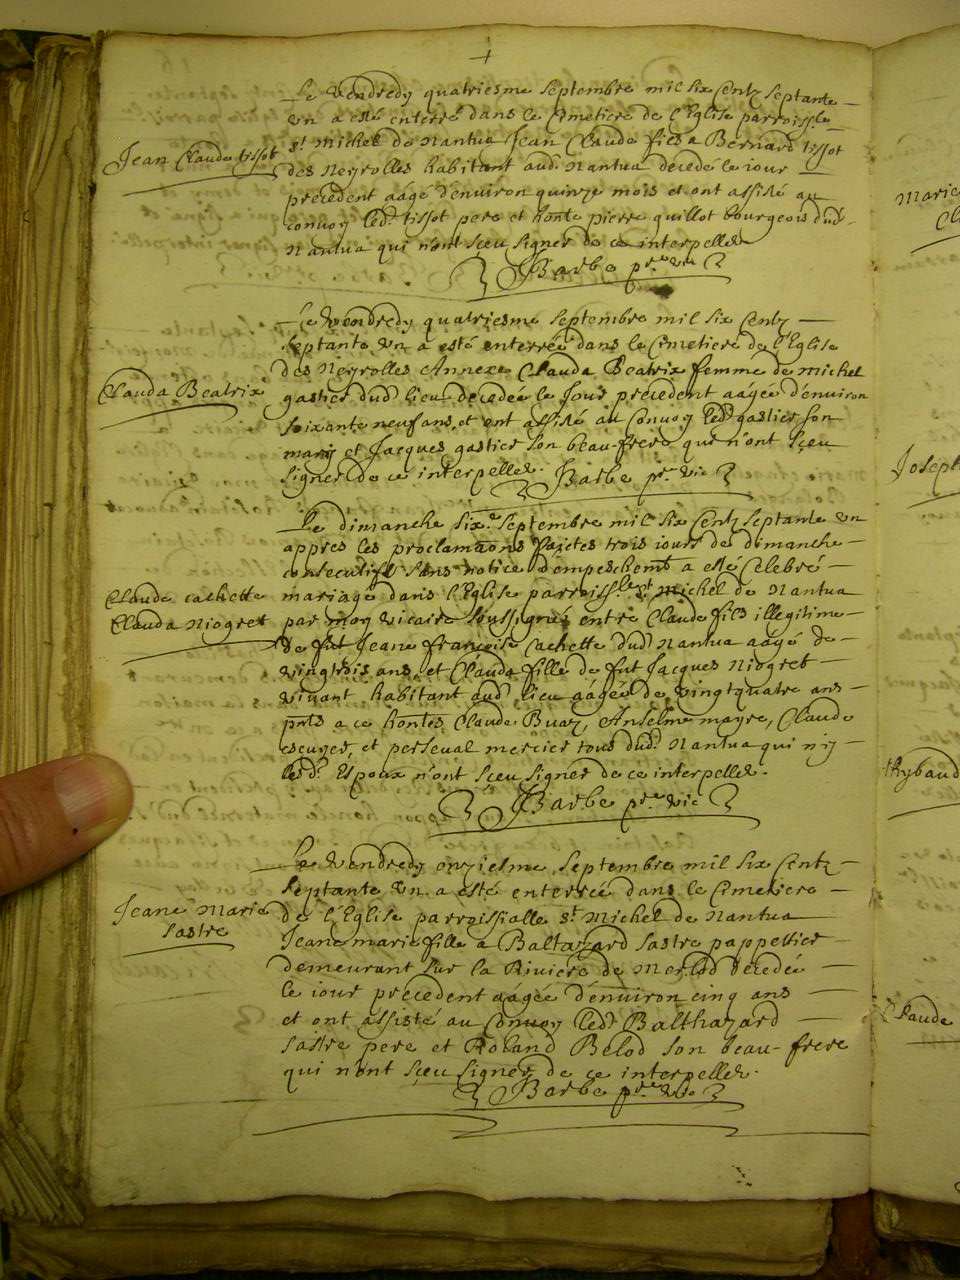 Le vendredy quatriesme septembre mil six centz septante
un a esté enterré dans le cimetiere de l'Eglise parroissle
Jean Claude tissot
st Michel de Nantua Jean Claude fils a Bernard tissot
des Neyrolles habitant aud. Nantua decedé le iour
precedent aagé d'environ quinze mois et ont assisté au
convoy led. tissot pere et honte pierre quillot bourgeois dud.
Nantua qui n'ont sçeu signer de ce interpellez
Barbe pre vic
Le vendredy quatriesme septembre mil six centz
septante un a esté enterrée dans le cimetiere de l'Eglise
des Neyrolles Annexe Clauda Beatrix femme de michel
Clauda Beatrix
gastier dud. lieu decedée le jour precedent aagée d'environ
soixante neuf ans, et ont assisté au convoy led. gastier son
mary et Jacques gastier son beau-frere qui n'ont sçeu
signer de ce interpellez. Barbe pre vic
Le dimanche sixe septembre mil six centz septante un
appres les proclamaons faictes trois iours de dimanche
consecutifs sans notice d'empeschemt a esté celebré
Claude cachette
mariage dans l'Eglise parroissle st michel de Nantua
Clauda Niogret
par moy vicaire soussigné entre Claude fils illegitime
de fut Jeane françoise Cachette dud. Nantua aagé de
vingtrois ans, et Clauda fille de fut Jacques Niogret
vivant habitant aud. lieu aagée de vingtquatre ans
pnts a ce hontes Claude Buaz, Anselme mayre, Claude
escuyer, et perseval mercier tous dud. Nantua qui n'y
lesd. Espoux n'ont sçeu signer de ce interpellez.
Barbe pre vic
Le vendredy onziesme septembre mil six centz
septante un a esté enterrée dans le cimetiere
Jeane Marie
de l'Eglise parroissialle st Michel de Nantua
sastre
Jeane marie fille a Baltazard sastre pappettier
demeurant sur la Riviere de Merlod decedée
le iour precedent aagée d'environ cinq ans
et ont assisté au convoy led. Balthazard
sastre pere et Roland Belod son beau-frere
qui n'ont sçeu signer de ce interpellez.
Barbe pre vic
Marie
Joseph
thybaud
Claude